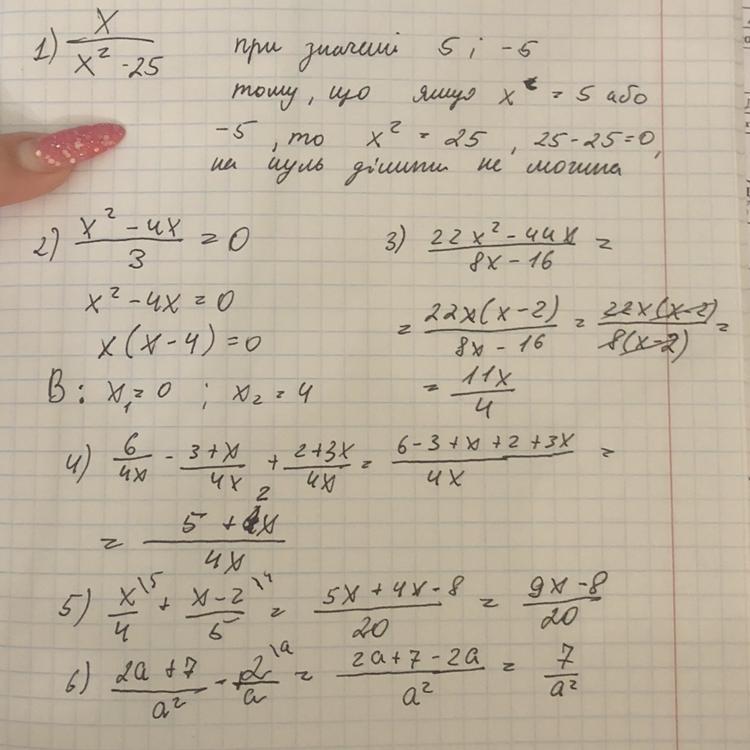 1) x / (x² - 25) при значені 5 і -5
тому, що якщо x = 5 або
-5, то x² = 25, 25-25=0,
на нуль ділити не можна
2) (x² - 4x) / 3 = 0
x² - 4x = 0
x(x-4) = 0
В: x₁ = 0 ; x₂ = 4
3) (22x² - 44x) / (8x - 16) =
= 22x(x-2) / (8x - 16) = 22x(x-2) / 8(x-2) =
= 11x / 4
4) 6 / 4x - (3+x) / 4x + (2+3x) / 4x = (6-3+x+2+3x) / 4x =
= (5 + 2x) / 4x
5) x\5 / 4 + x-2\4 / 5 = (5x + 4x - 8) / 20 = (9x-8) / 20
6) (2a+7) / a² - 2\a / a = (2a+7-2a) / a² = 7 / a²